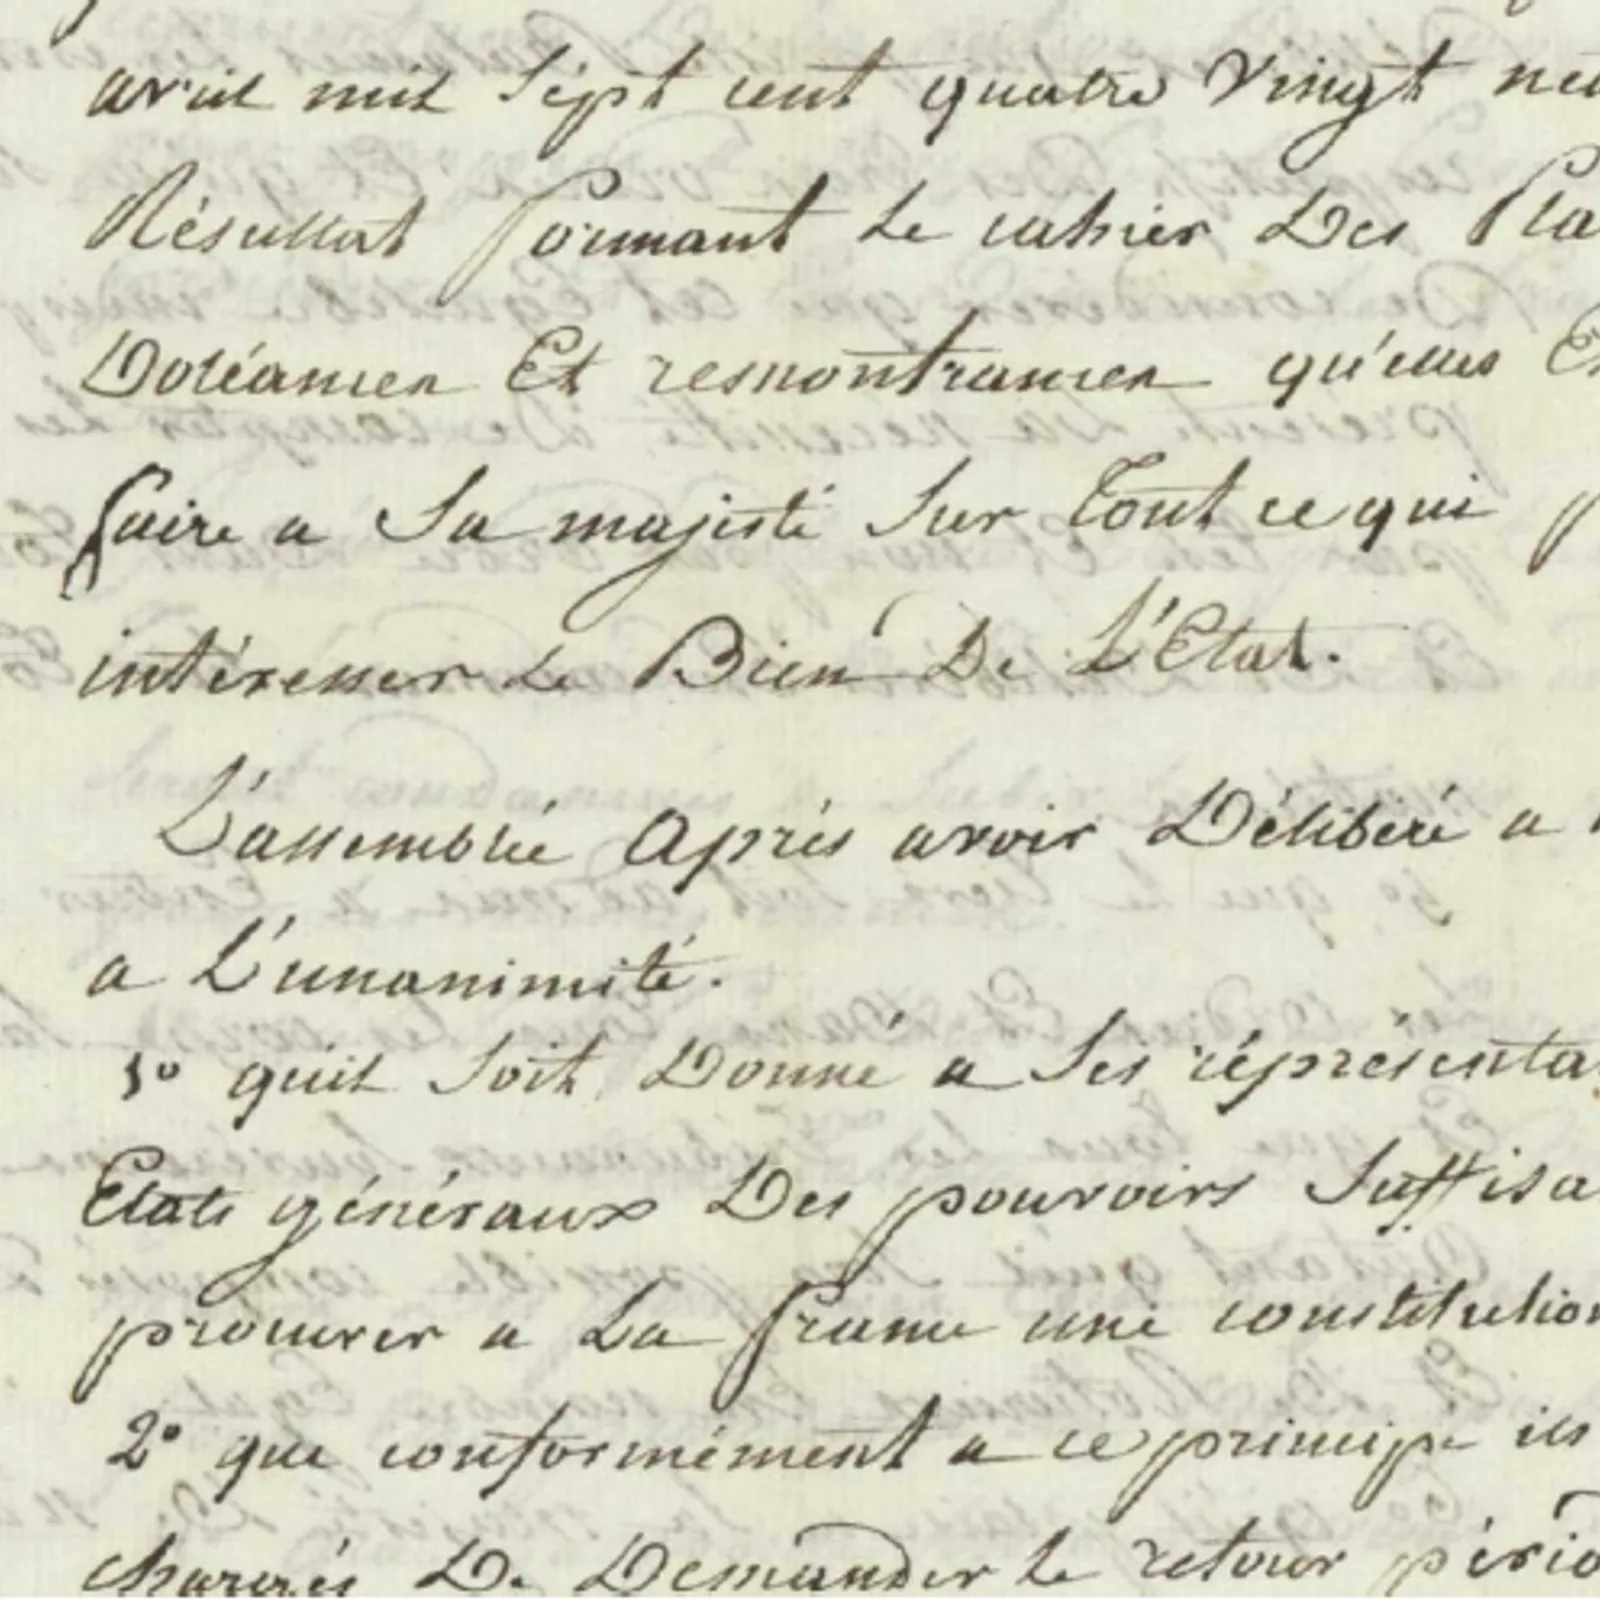 avril mil sept cent quatre vingt neu
Résultat formant Le cahier Des Pla
Doléances Et remontrances qu'elles E
faire a Sa majesté Sur Tout ce qui p
intéresser Le Bien De L'Etat.
L'assemblée Après avoir Délibéré a
a L'unanimité.
1º qu'il Soit Donné a Ses réprésenta
Etats généraux Des pouvoirs Suffisa
procurer a La france une constitution
2º que conformément a ce principe ils
chargés De Demander Le retour pério